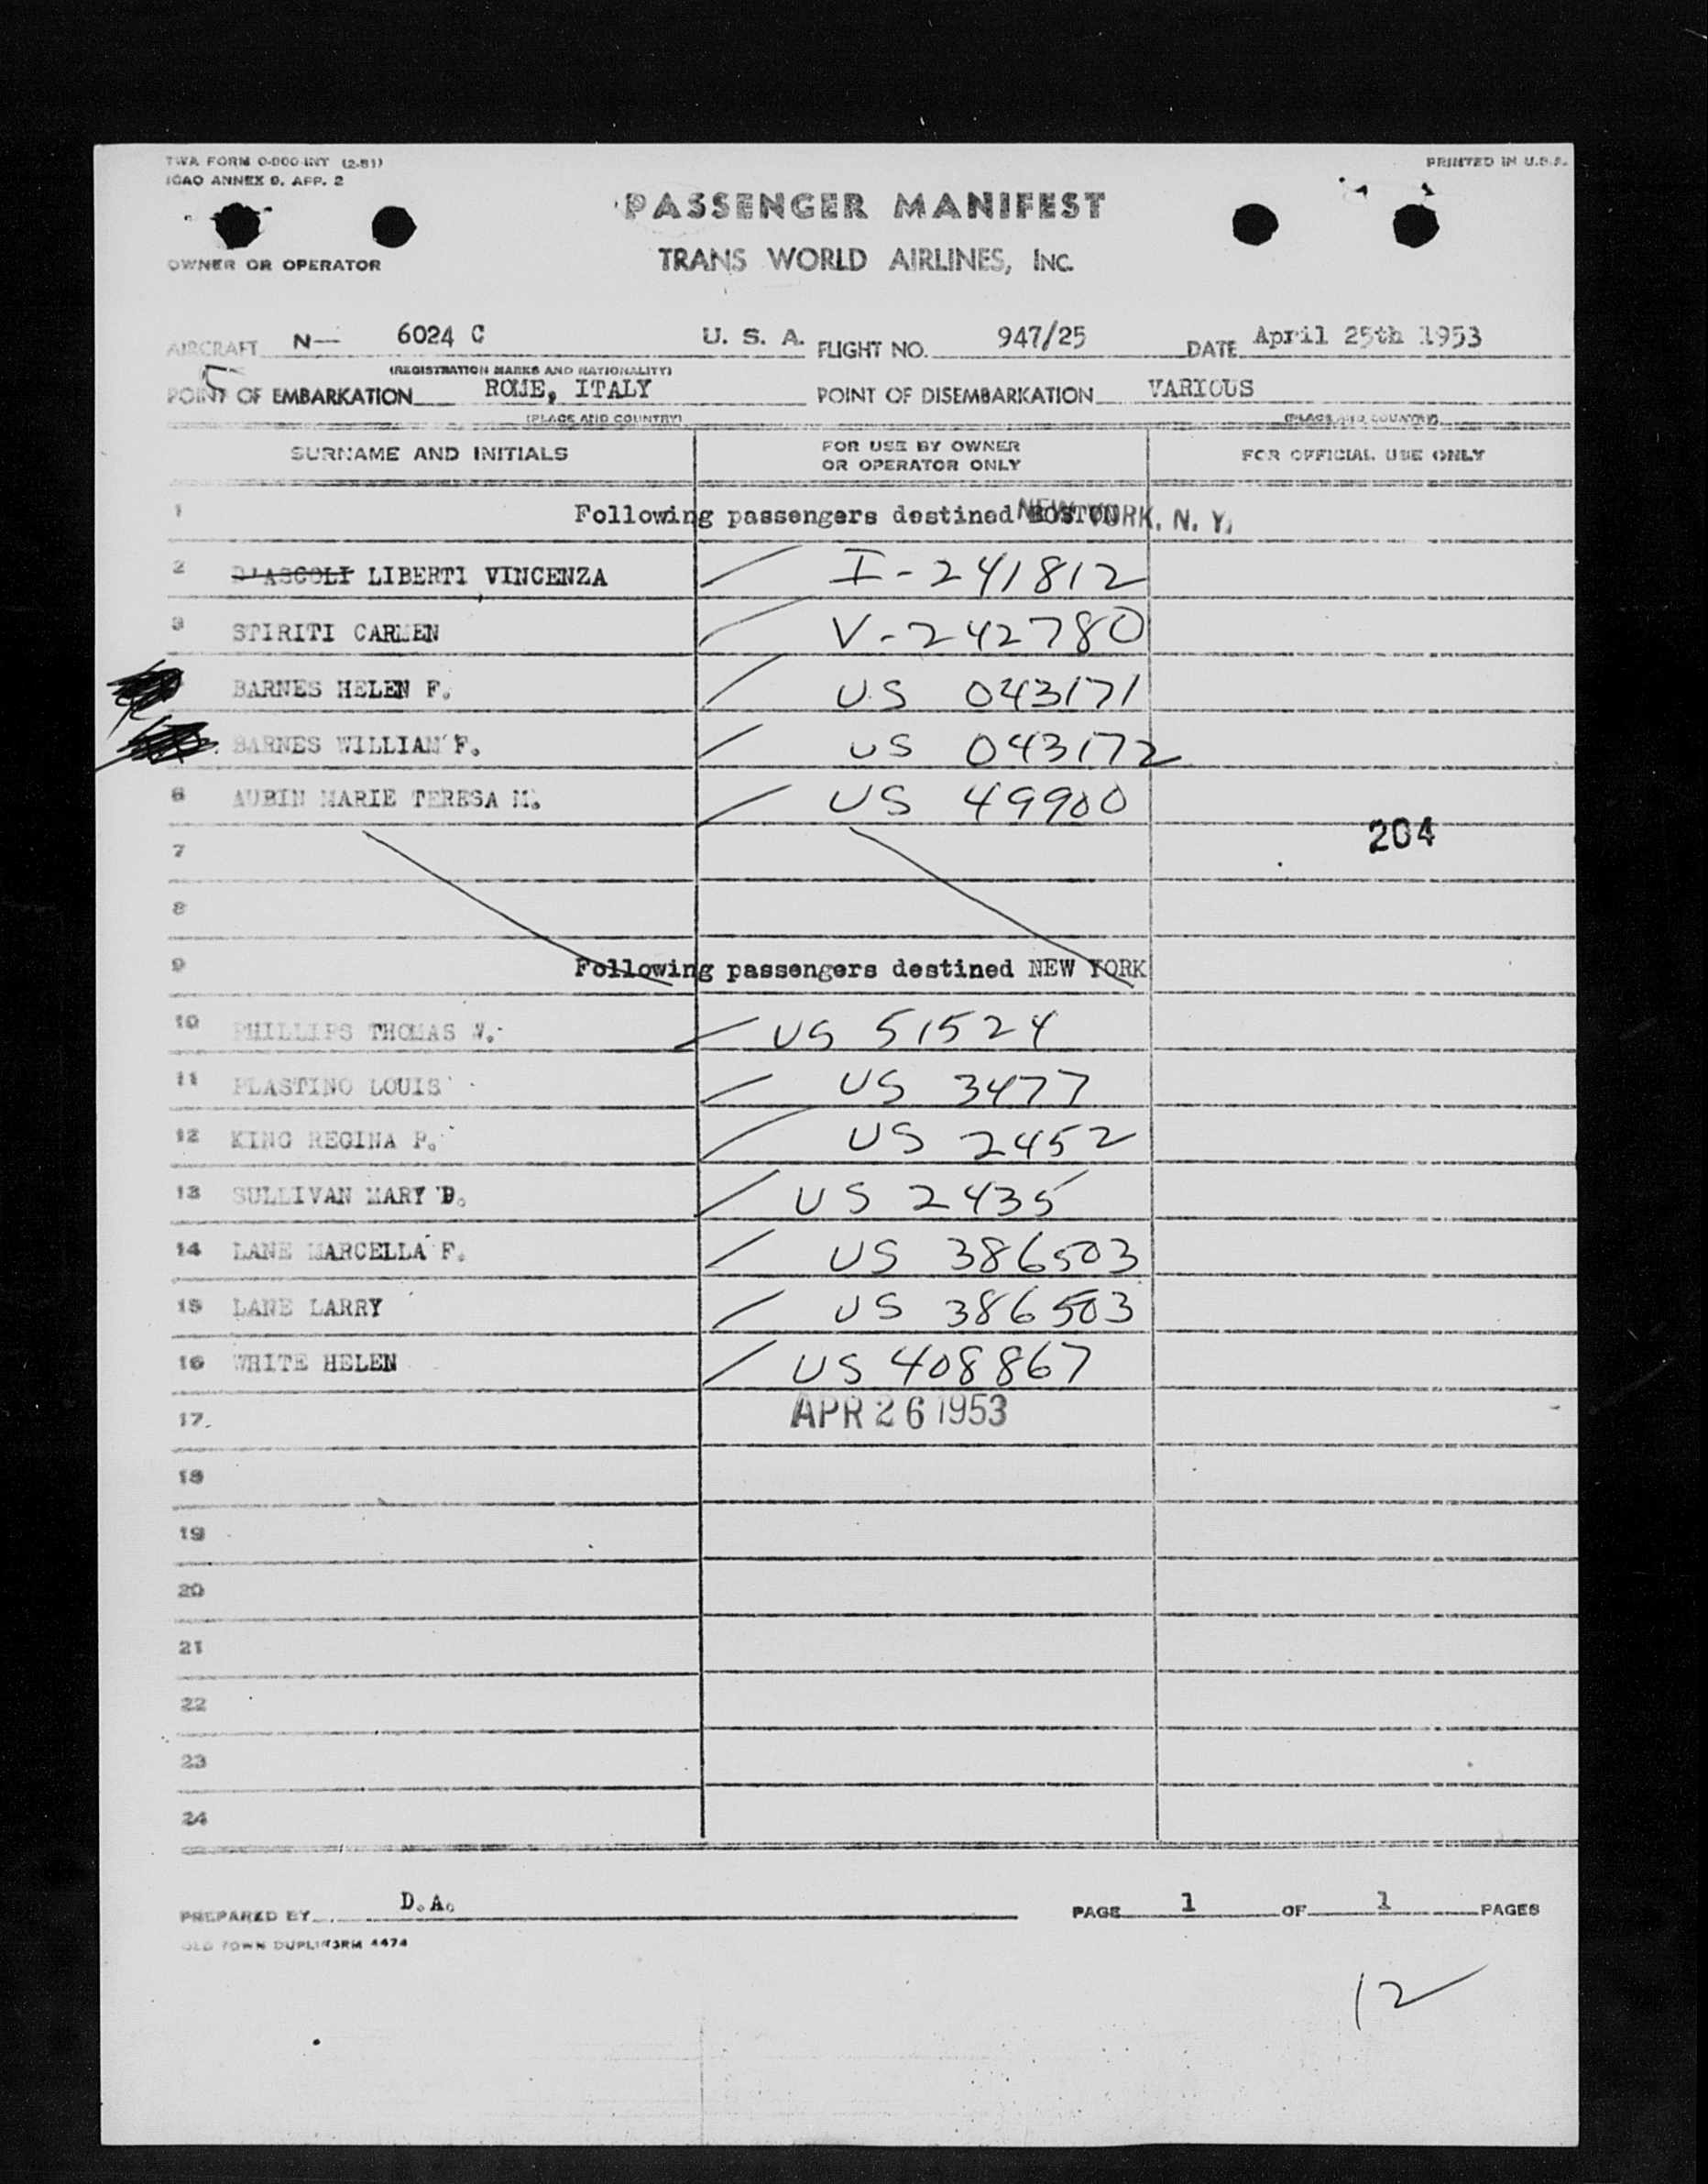 TWA FORM 0-900-INT (2-51)
PRINTED IN U.S.A.
ICAO ANNEX 9, APP. 2
PASSENGER MANIFEST
OWNER OR OPERATOR
TRANS WORLD AIRLINES, INC.
AIRCRAFT N- 6024 C U. S. A. FLIGHT NO. 947/25 DATE April 25th 1953
(REGISTRATION MARKS AND NATIONALITY)
POINT OF EMBARKATION ROME, ITALY POINT OF DISEMBARKATION VARIOUS
(PLACE AND COUNTRY) (PLACE AND COUNTRY)
SURNAME AND INITIALS FOR USE BY OWNER OR OPERATOR ONLY FOR OFFICIAL USE ONLY
1 Following passengers destined BOSTON NEW YORK, N. Y.
2 D'ASCOLI LIBERTI VINCENZA I-241812
3 SPIRITI CARMEN V-242780
BARNES HELEN F. US 043171
BARNES WILLIAM F. US 043172
6 AUBIN MARIE TERESA M. US 49900
7 204
8
9 Following passengers destined NEW YORK
10 PHILLIPS THOMAS W. US 51524
11 PLASTINO LOUIS US 3477
12 KING REGINA P. US 2452
13 SULLIVAN MARY D. US 2435
14 LANE MARCELLA F. US 386503
15 LANE LARRY US 386503
16 WHITE HELEN US 408867
17. APR 26 1953
18
19
20
21
22
23
24
PREPARED BY D.A. PAGE 1 OF 1 PAGES
OLD TOWN DUPLIFORM 4474
12